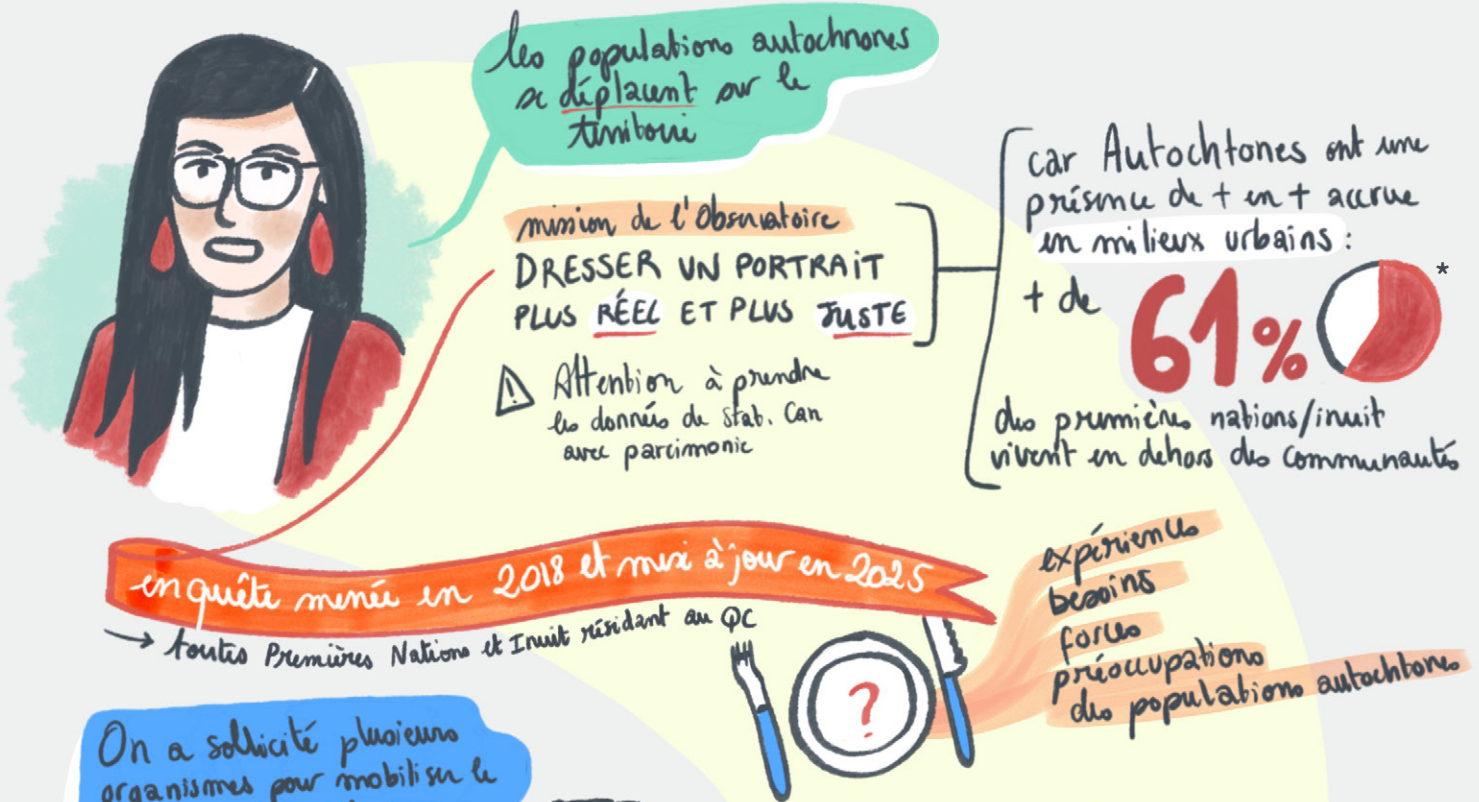 les populations autochnones
se déplacent sur le
territoire
mission de l'Observatoire
DRESSER UN PORTRAIT
PLUS RÉEL ET PLUS JUSTE
Attention à prendre
les données de Stat. Can
avec parcimonie
car Autochtones ont une
présence de + en + accrue
en milieux urbains :
+ de 61% *
des premières nations/inuit
vivent en dehors des communautés
enquête menée en 2018 et mise à jour en 2025
→ toutes Premières Nations et Inuit résidant au QC
?
expériences
besoins
forces
préoccupations
des populations autochtones
On a sollicité plusieurs
organismes pour mobiliser le